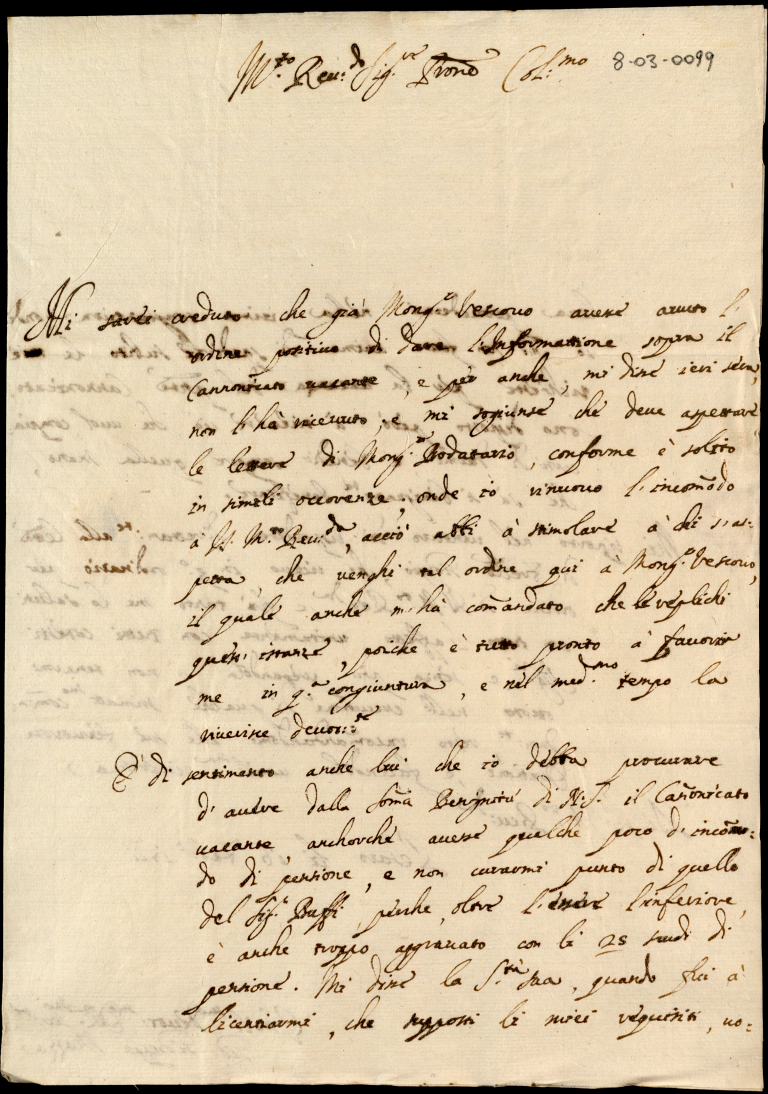 M.to Reu.do Sig.re Prone Col.mo 8-03-0099
Mi sarei creduto che già Mong.r Vescouo auesse auuto l'
ordine positiuo di dare l'Informattione sopra il
Cannonicato uacante, e per anche, mi disse ieri sera,
non l'hà riceuuto, e mi sogiunse che deue aspettare
le lettere di Mong.r Prodatario, conforme è solito
in simili occorenze, onde io rinuouo l'incomodo
à V.S. M.to Reu.da, acciò abbi à stimolare à chi s'as:
petta, che uenghi tal ordine qui à Mong.r Vescouo,
il quale anche m'hà comandato che le replichi
quest' istanze, poiche è tutto pronto à fauorir
me in q.a congiuntura, e nel med.mo tempo la
riuerisce deuot.te
E' di sentimento anche lui che io debba procurare
d'auere dalla soma Benignità di N.S. il Canonicato
uacante anchorche auesse qualche poco d'incomo:
do di pensione, e non curarmi punto di quello
del Sig.r Buffi, perche, oltre l'essere l'inferiore,
è anche troppo aggrauato con li 25 scudi di
pensione. Mi disse la S.tà sua, quando fui à
licentiarmi, che supposti li miei requisiti, uo: